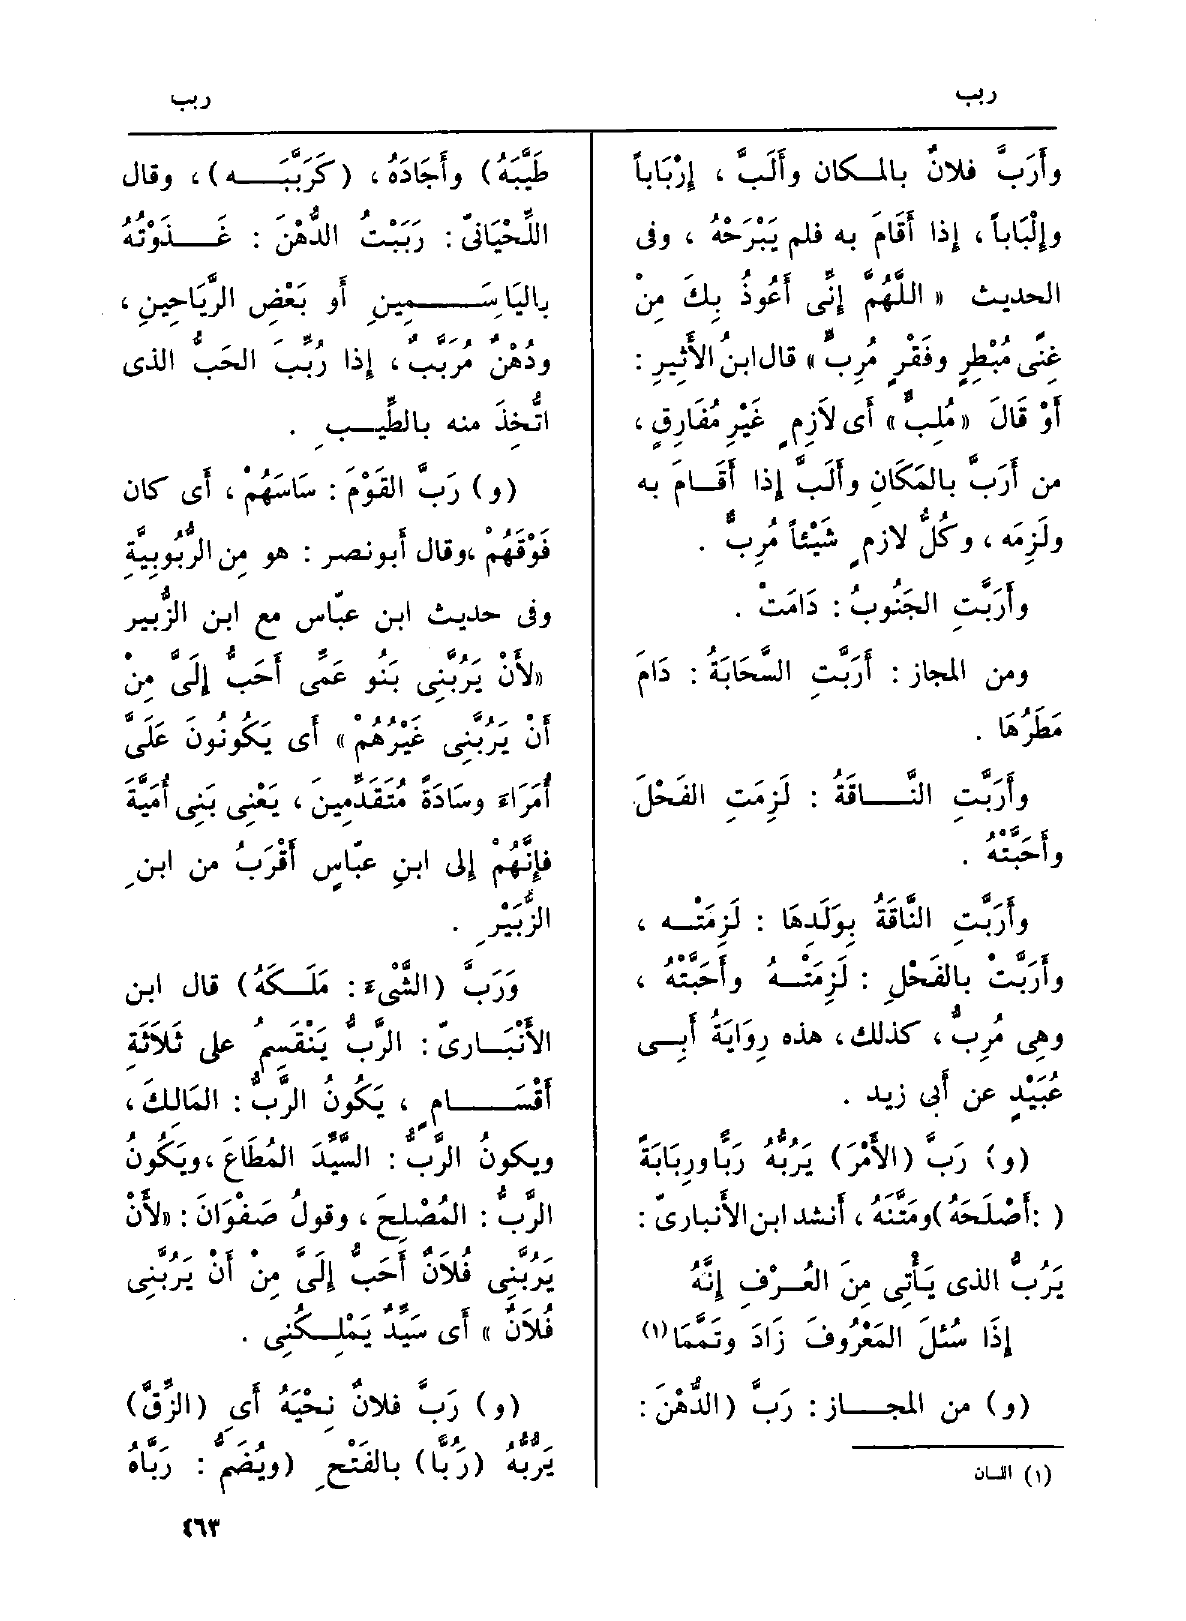 ربب
ربب
وأَرَبَّ فلانٌ بالمكان وأَلَبَّ ، إِرْبَاباً
وإِلْبَاباً ، إذا أَقَامَ به فلم يَبْرَحْهُ ، وفى
الحديث « اللَّهُمَّ إِنِّى أَعُوذُ بِكَ مِنْ
غِنًى مُبْطِرٍ وفَقْرٍ مُرِبٍّ » قال ابنُ الأَثِيرِ :
أَوْ قَالَ « مُلِبٍّ » أَى لاَزِمٍ غَيْرِ مُفَارِقٍ ،
من أَرَبَّ بالمَكَانِ وأَلَبَّ إذا أَقَامَ به
ولَزِمَه ، وكُلُّ لازمٍ شَيْئاً مُرِبٌّ .
وأَرَبَّتِ الجَنُوبُ : دَامَتْ .
ومن المجاز : أَرَبَّتِ السَّحَابَةُ : دَامَ
مَطَرُهَا .
وأَرَبَّتِ النَّاقَةُ : لَزِمَتِ الفَحْلَ
وأَحَبَّتْهُ .
وأَرَبَّتِ النَّاقَةُ بِوَلَدِهَا : لَزِمَتْه ،
وأَرَبَّتْ بالفَحْلِ : لَزِمَتْهُ وأَحَبَّتْهُ ،
وهِى مُرِبٌّ ، كذلك ، هذه رِوَايَةُ أَبِى
عُبَيْدٍ عن أَبى زيد .
(و) رَبَّ (الأَمْرَ) يَرُبُّهُ رَبًّا ورِبَابَةً
( : أَصْلَحَهُ) ومَتَّنَهُ ، أَنشد ابن الأَنبارىّ :
يَرُبُّ الذى يَأْتِى مِنَ العُرْفِ إِنَّهُ
إِذَا سُئلَ المَعْرُوفَ زَادَ وتَمَّمَا (١)
(و) من المجاز : رَبَّ (الدُّهْنَ :
(١) اللسان
طَيَّبَهُ) وأَجَادَهُ ، (كَرَبَّبَه) ، وقال
اللِّحْيَانىّ : رَبَبْتُ الدُّهْنَ : غَذَوْتُهُ
باليَاسَمِينِ أَو بَعْضِ الرَّيَاحِينِ ،
ودُهْنٌ مُرَبَّبٌ ، إِذا رُبِّبَ الحَبُّ الذى
اتُّخِذَ منه بالطِّيبِ .
(و) رَبَّ القَوْمَ : سَاسَهُمْ ، أَى كان
فَوْقَهُمْ ، وقال أَبو نصر : هو مِن الرُّبُوبِيَّةِ
وفى حديث ابن عبّاس مع ابن الزُّبير
« لأَنْ يَرُبَّنِى بَنُو عَمِّى أَحَبُّ إِلَىَّ مِنْ
أَنْ يَرُبَّنِى غَيْرُهُمْ » أَى يَكُونُونَ عَلَىَّ
أُمَرَاءَ وسَادَةً مُتَقَدِّمِينَ ، يَعْنِى بَنِى أُمَيَّةَ
فإِنَّهُمْ إِلى ابنِ عبّاسٍ أَقْرَبُ من ابنِ
الزُّبَيْرِ .
وَرَبَّ (الشَّىْءَ : مَلَكَهُ) قال ابن
الأَنْبَارىّ : الرَّبُّ يَنْقَسِمُ على ثَلاَثَةِ
أَقْسَامٍ ، يَكُونُ الرَّبُّ : المَالِكَ ،
ويكونُ الرَّبُّ : السَّيِّدَ المُطَاعَ ، ويَكُونُ
الرَّبُّ : المُصْلِحَ ، وقولُ صَفْوَانَ : « لأَنْ
يَرُبَّنِى فُلاَنٌ أَحَبُّ إِلَىَّ مِنْ أَنْ يَرُبَّنِى
فُلاَنٌ » أَى سَيِّدٌ يَمْلِكُنِى .
(و) رَبَّ فلانٌ نِحْيَهُ أَىِ (الزِّقَّ)
يَرُبُّهُ (رَبًّا) بالفَتْحِ (ويُضَمُّ : رَبَّاهُ
٤٦٣